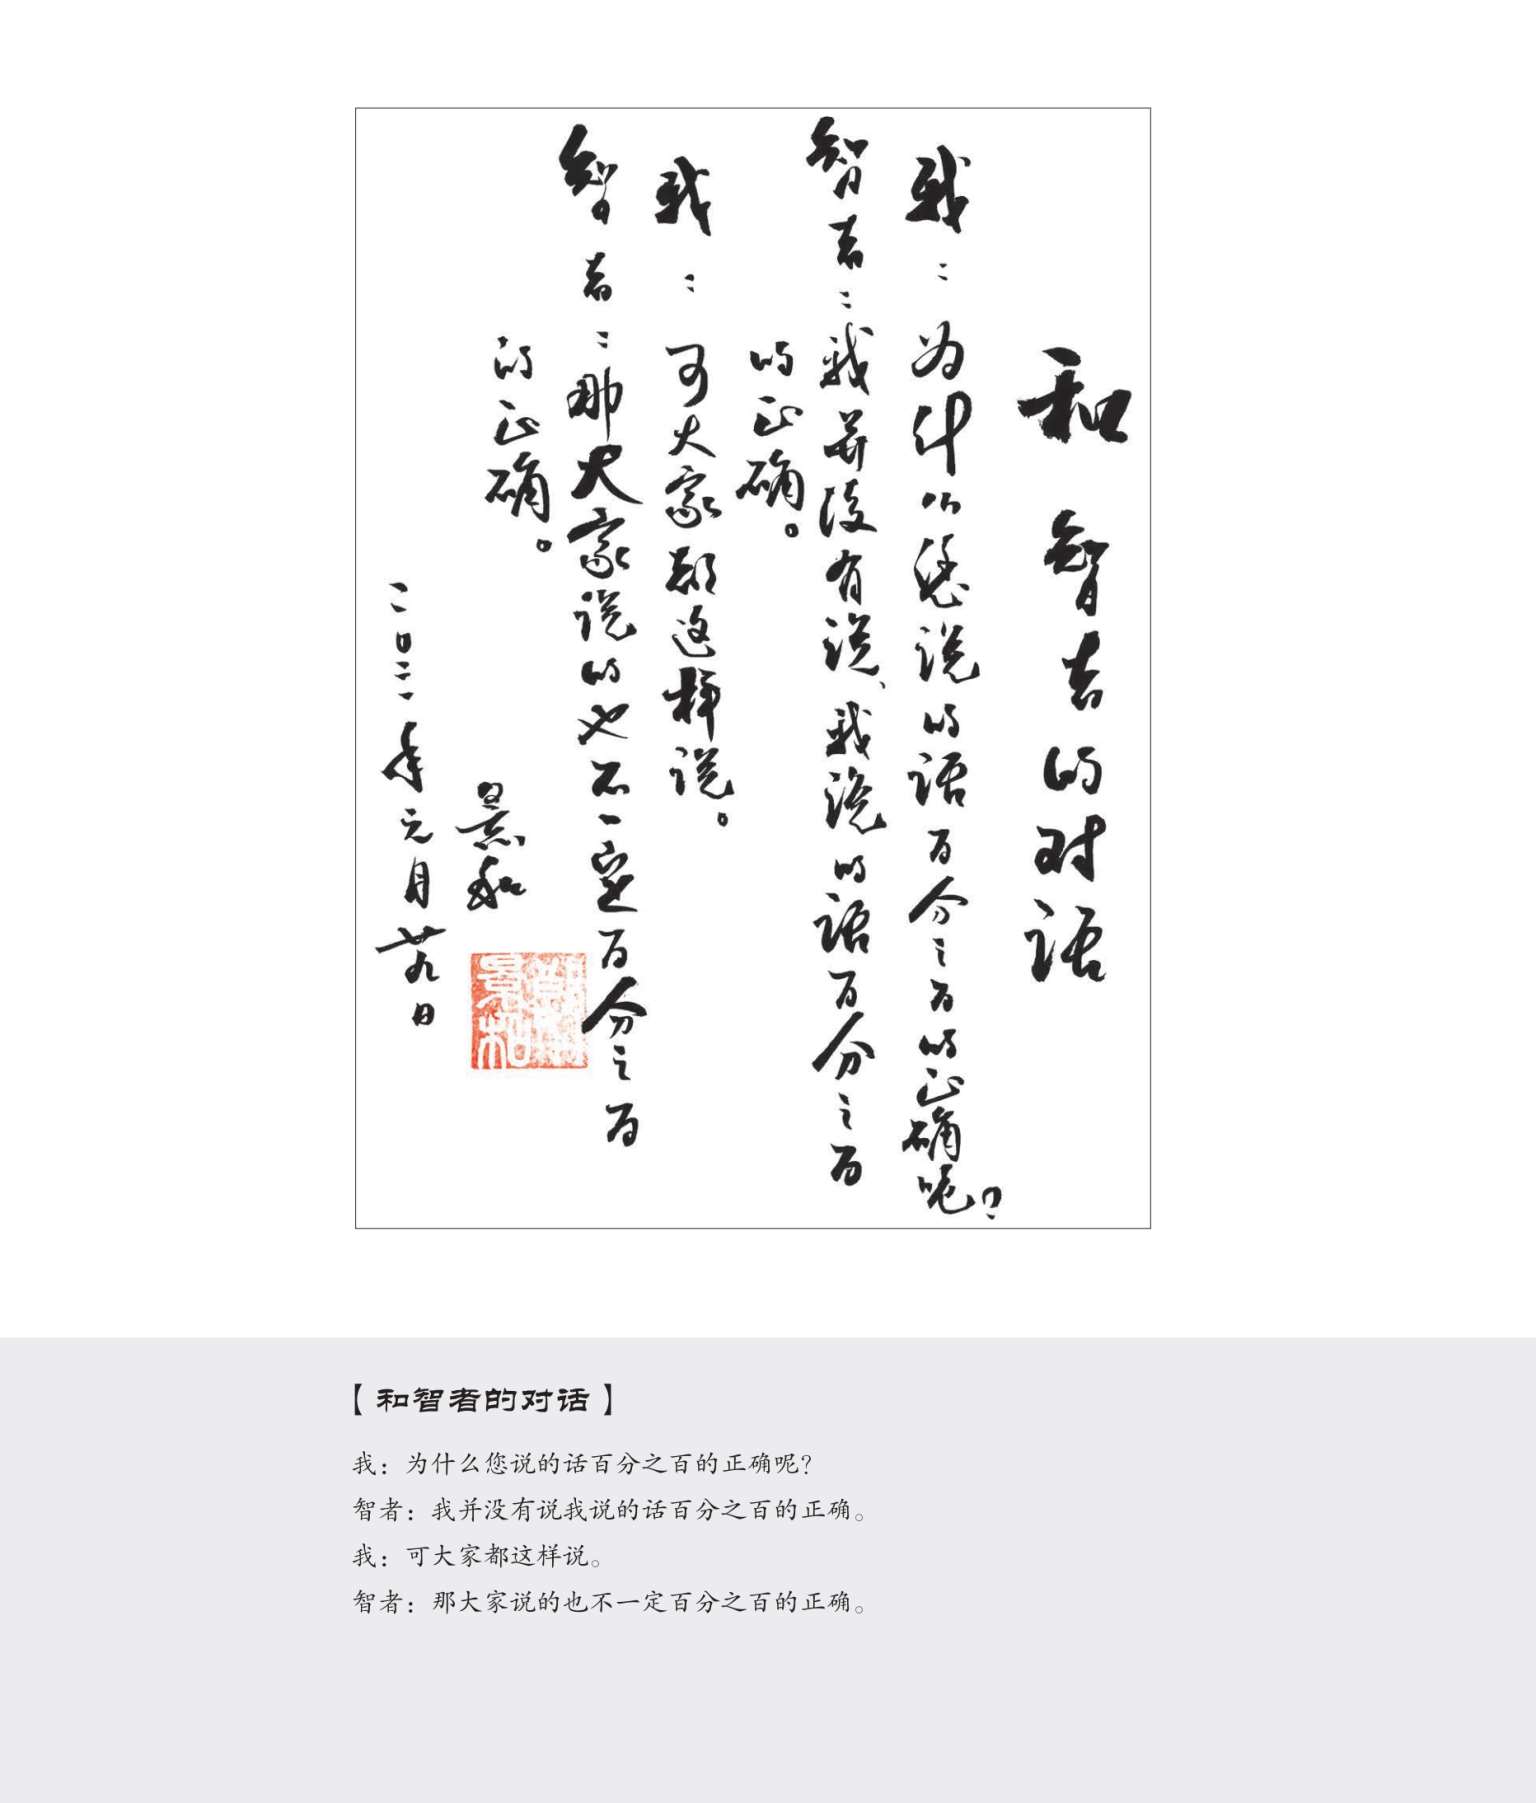 和智者的对话
我：为什么您说的话百分之百的正确呢？
智者：我并没有说、我说的话百分之百
的正确。
我：可大家都这样说。
智者：那大家说的也不一定百分之百
的正确。
景和
二〇二二年元月廿九日
【和智者的对话】
我：为什么您说的话百分之百的正确呢？
智者：我并没有说我说的话百分之百的正确。
我：可大家都这样说。
智者：那大家说的也不一定百分之百的正确。